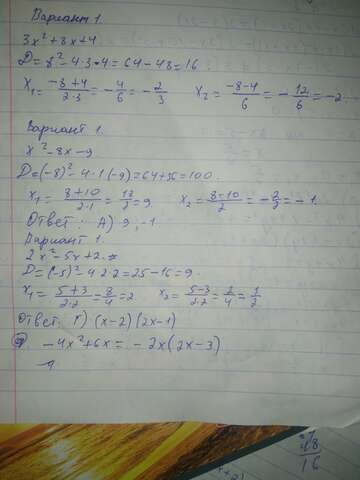 Вариант 1.
3x²+8x+4
D=8²-4·3·4=64-48=16
x₁=(-8+4)/(2·3)=-4/6=-2/3 x₂=(-8-4)/6=-12/6=-2
Вариант 1.
x²-8x-9
D=(-8)²-4·1·(-9)=64+36=100
x₁=(8+10)/(2·1)=18/2=9 x₂=(8-10)/2=-2/2=-1.
Ответ: А) 9; -1
Вариант 1.
2x²-5x+2.
D=(-5)²-4·2·2=25-16=9
x₁=(5+3)/(2·2)=8/4=2 x₂=(5-3)/(2·2)=2/4=1/2
Ответ: (x-2)(2x-1)
-4x²+6x=-2x(2x-3)
48
16